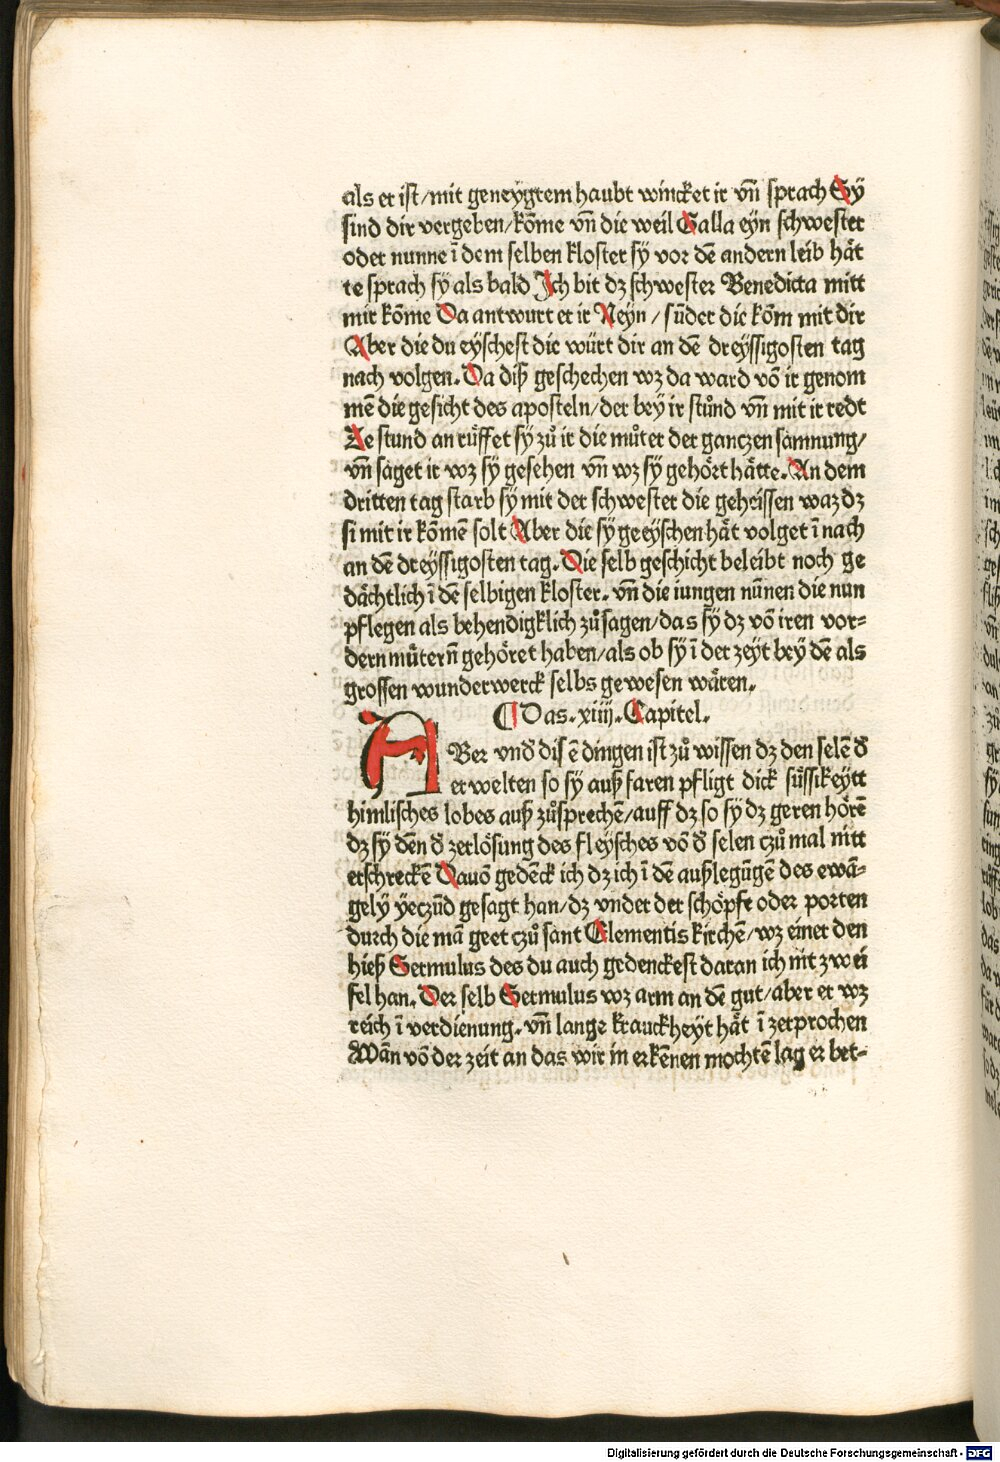 als er ist/mit geneygtem haubt wincket ir vn̄ sprach Sy
sind dir vergeben/kōme vn̄ die weil Galla eyn schwester
oder nunne ī dem selben kloster sy vor dē andern leib hät
te sprach sy als bald Ich bit dz schwester Benedicta mitt
mir kōme Da antwurt er ir Neyn / sūder die kōm mit dir
Aber die du eyschest die würt dir an dē dreyssigosten tag
nach volgen. Da diß geschechen wz da ward vō ir genom
mē die gesicht des aposteln/der bey ir stůnd vn̄ mit ir redt
Ze stund an rüffet sy zů ir die můter der ganczen samnung/
vn̄ saget ir wz sy gesehen vn̄ wz sy gehört hätte. An dem
dritten tag starb sy mit der schwester die geheissen waz dz
si mit ir kōmen solt Aber die sy geeyschen hät volget ī nach
an dē dreyssigosten tag. Die selb geschicht beleibt noch ge
dächtlich ī dē selbigen kloster. vn̄ die iungen nūnen die nun
pflegen als behendigklich zůsagen/das sy dz vō iren vor=
dern mütern̄ gehöret haben/als ob sy ī der zeyt bey dē als
grossen wunderwerck selbs gewesen wären.
¶ Das. xiiij. Capitel.
ABer vnd̄ disē dingen ist zů wissen dz den selē d̄
erwelten so sy auß faren pfligt dick süssikeytt
himlisches lobes auß zůsprechē/auff dz so sy dz geren hörē
dz sy dēn d̄ zerlösung des fleysches vō d̄ selen czů mal nitt
erschreckē Dauō gedēck ich dz ich ī dē außlegūgē des ewā=
gely yeczūd gesagt han/dz vnder der schöpfe oder porten
durch die mā geet czů sant Clementis kirchē/wz einer den
hieß Sermulus des du auch gedenckest daran ich nit zwei
fel han. Der selb Sermulus wz arm an dē gut/aber er wz
reich ī verdienung. vn̄ lange kranckheyt hät ī zerprochen
Wān vō der zeit an das wir in erkēnen mochtē lag er bet=
Digitalisierung gefördert durch die Deutsche Forschungsgemeinschaft - DFG